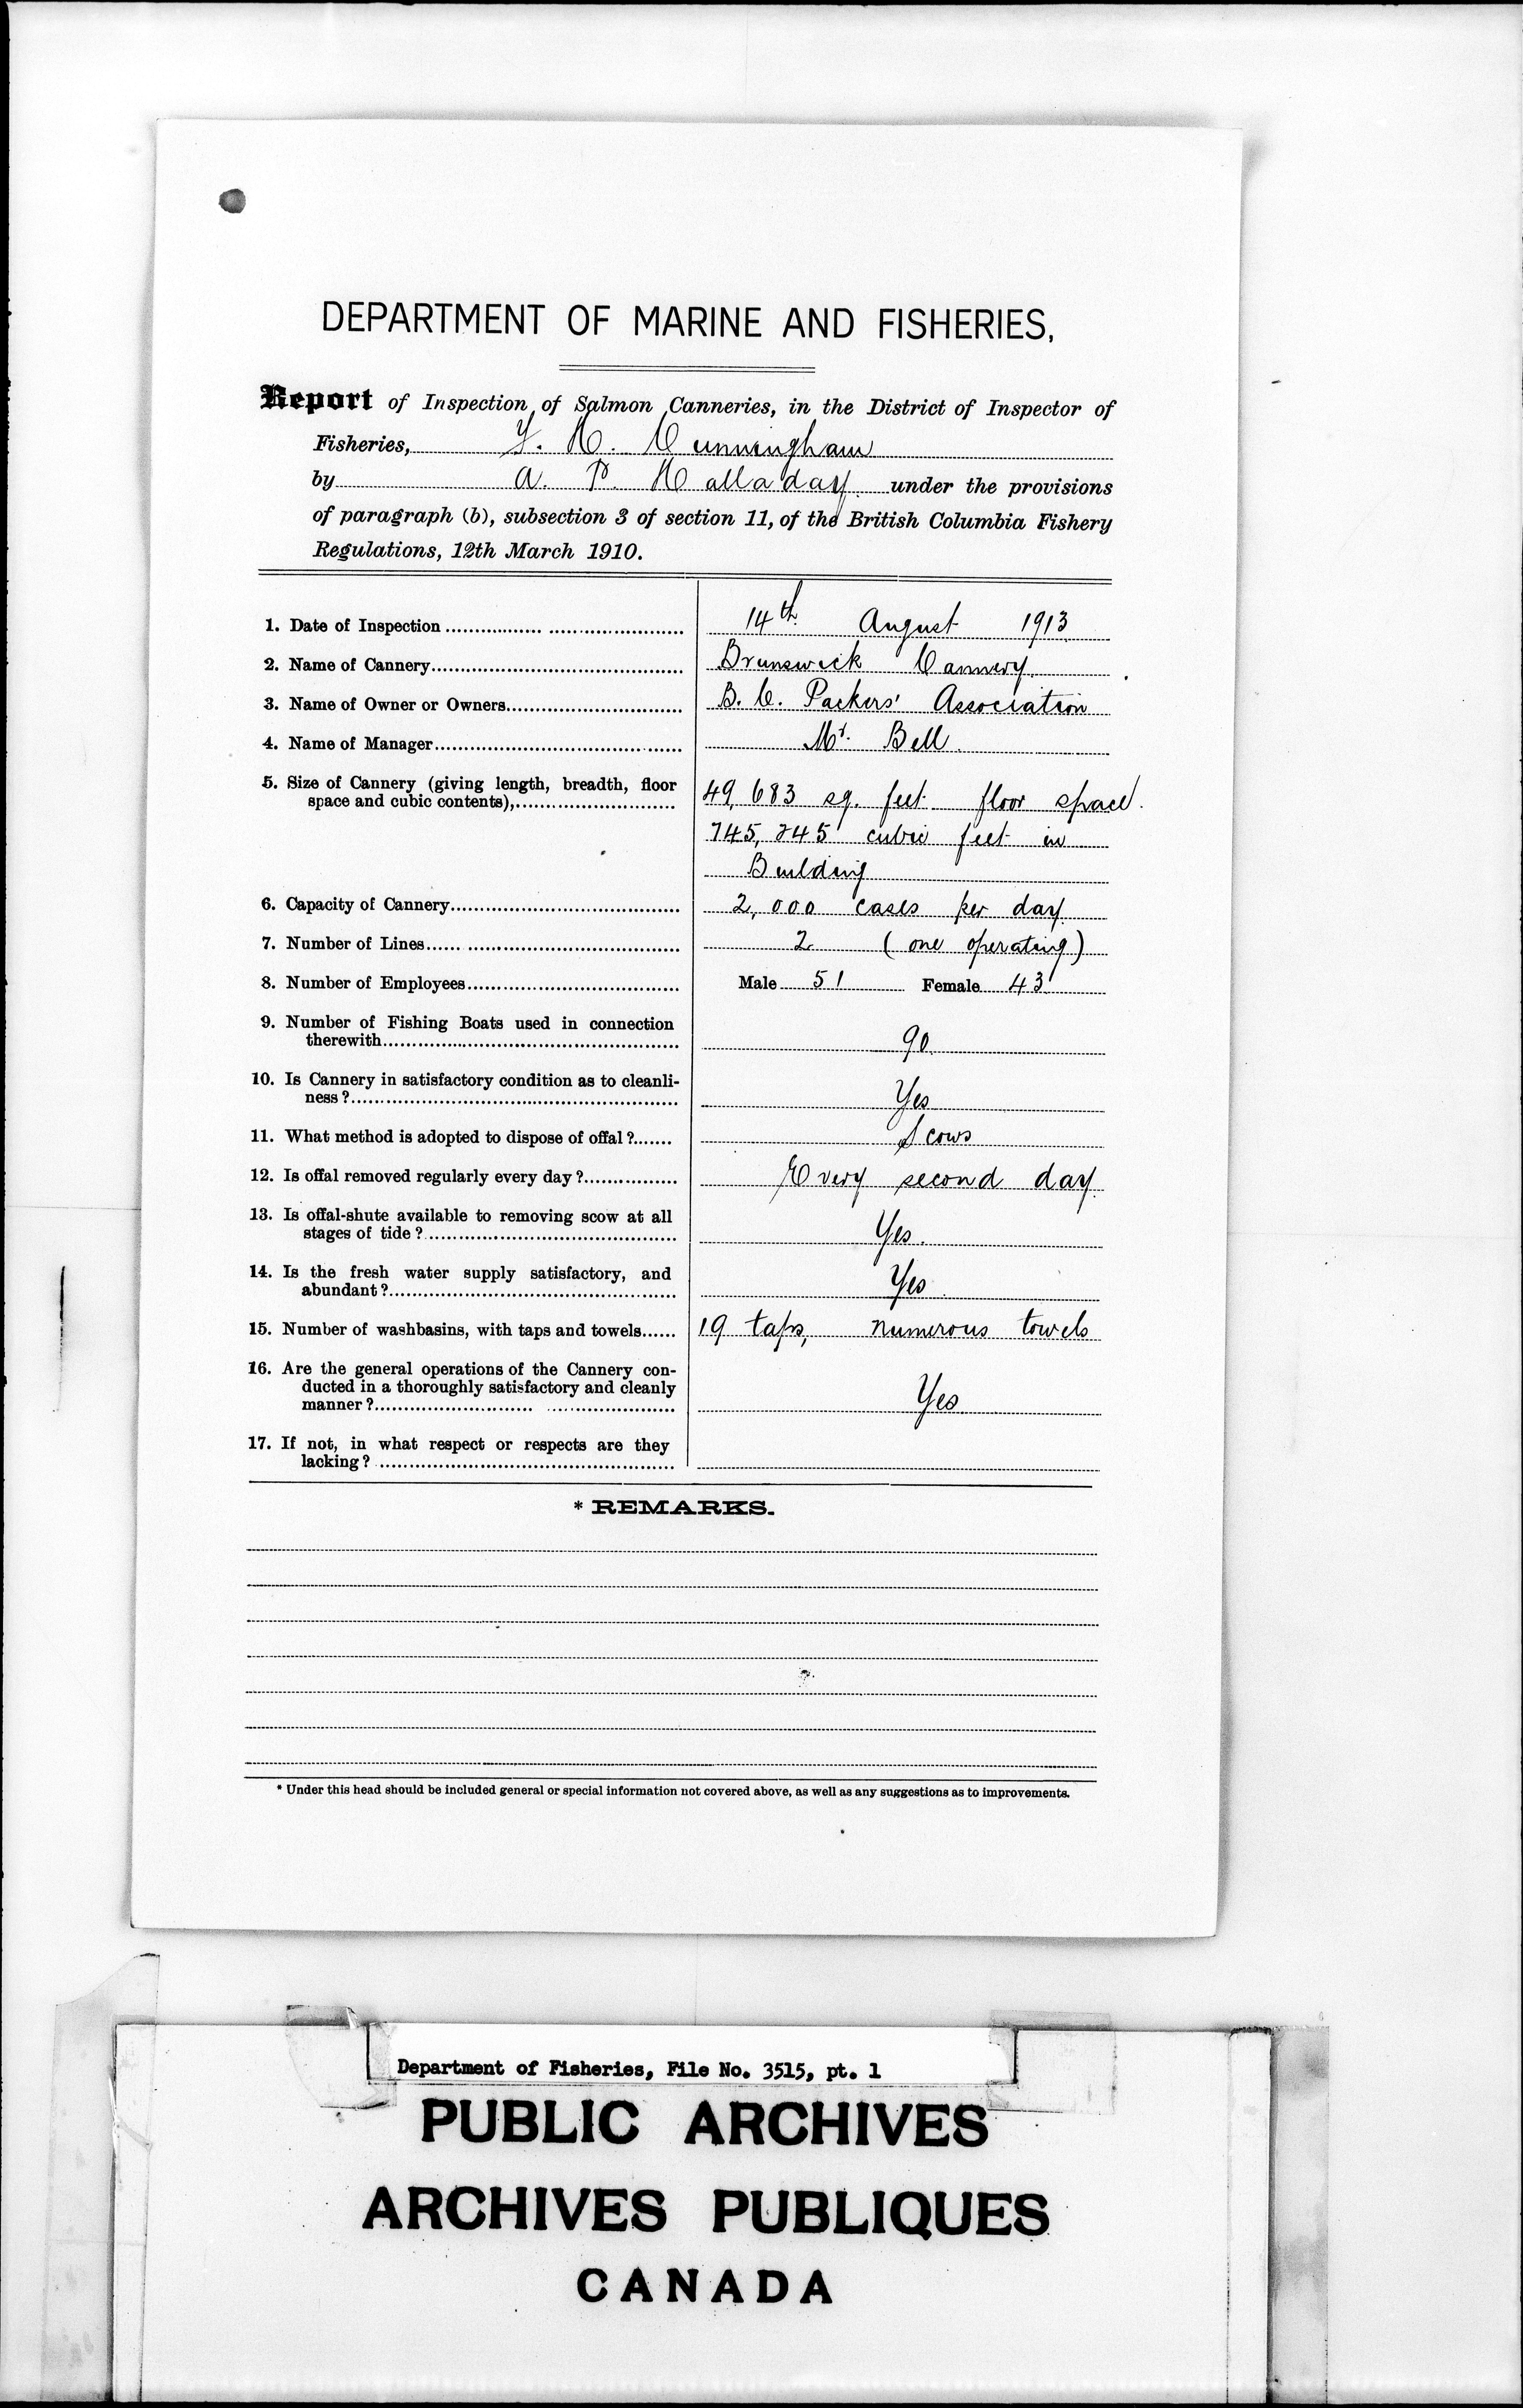 DEPARTMENT OF MARINE AND FISHERIES,
Report of Inspection of Salmon Canneries, in the District of Inspector of
Fisheries, F. H. Cunningham
by A. P. Halladay under the provisions
of paragraph (b), subsection 3 of section 11, of the British Columbia Fishery
Regulations, 12th March 1910.
1. Date of Inspection 14th August 1913
2. Name of Cannery Brunswick Cannery.
3. Name of Owner or Owners B. C. Packers' Association
4. Name of Manager Mr. Bell
5. Size of Cannery (giving length, breadth, floor
space and cubic contents), 49,683 sq. feet floor space.
745,245 cubic feet in
Building
6. Capacity of Cannery 2,000 cases per day
7. Number of Lines 2 (one operating)
8. Number of Employees Male 51 Female 43
9. Number of Fishing Boats used in connection
therewith 90
10. Is Cannery in satisfactory condition as to cleanli-
ness? Yes
11. What method is adopted to dispose of offal? Scows
12. Is offal removed regularly every day? Every second day
13. Is offal-shute available to removing scow at all
stages of tide? Yes.
14. Is the fresh water supply satisfactory, and
abundant? Yes.
15. Number of washbasins, with taps and towels 19 taps, numerous towels
16. Are the general operations of the Cannery con-
ducted in a thoroughly satisfactory and cleanly
manner? Yes
17. If not, in what respect or respects are they
lacking?
* REMARKS.
* Under this head should be included general or special information not covered above, as well as any suggestions as to improvements.
Department of Fisheries, File No. 3515, pt. 1
PUBLIC ARCHIVES
ARCHIVES PUBLIQUES
CANADA